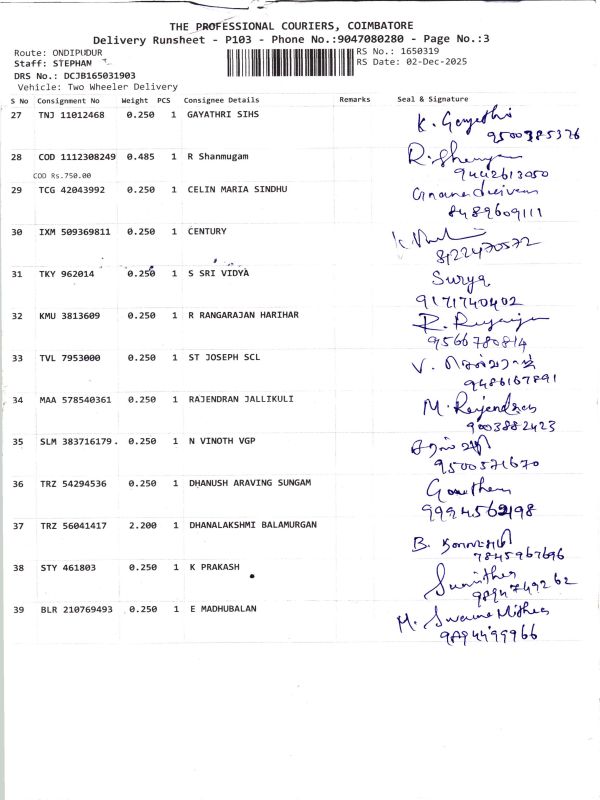 THE PROFESSIONAL COURIERS, COIMBATORE
Delivery Runsheet - P103 - Phone No.:9047080280 - Page No.:3
Route: ONDIPUDUR
RS No.: 1650319
Staff: STEPHAN
RS Date: 02-Dec-2025
DRS No.: DCJB165031903
Vehicle: Two Wheeler Delivery
S No Consignment No Weight PCS Consignee Details Remarks Seal & Signature
27 TNJ 11012468 0.250 1 GAYATHRI SIHS K. Gayathri
9500385376
28 COD 1112308249 0.485 1 R Shanmugam
COD Rs.750.00 9442613050
29 TCG 42043992 0.250 1 CELIN MARIA SINDHU
8489609111
30 IXM 509369811 0.250 1 CENTURY
8122470572
31 TKY 962014 0.250 1 S SRI VIDYA Surya
9171740402
32 KMU 3813609 0.250 1 R RANGARAJAN HARIHAR
9566780814
33 TVL 7953000 0.250 1 ST JOSEPH SCL
9486167891
34 MAA 578540361 0.250 1 RAJENDRAN JALLIKULI M. Rajendran
9003882423
35 SLM 383716179. 0.250 1 N VINOTH VGP
9500571670
36 TRZ 54294536 0.250 1 DHANUSH ARAVING SUNGAM
37 TRZ 56041417 2.200 1 DHANALAKSHMI BALAMURGAN
7845967696
38 STY 461803 0.250 1 K PRAKASH
9894749262
39 BLR 210769493 0.250 1 E MADHUBALAN
9894499966